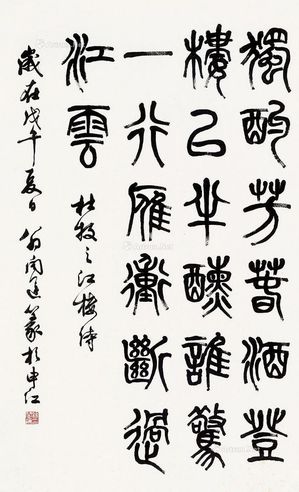 獨酌芳春酒登
樓已半醺誰驚
一行雁衝斷過
江雲
杜牧之江樓詩
歲在戊午夏日翁闓運篆於申江